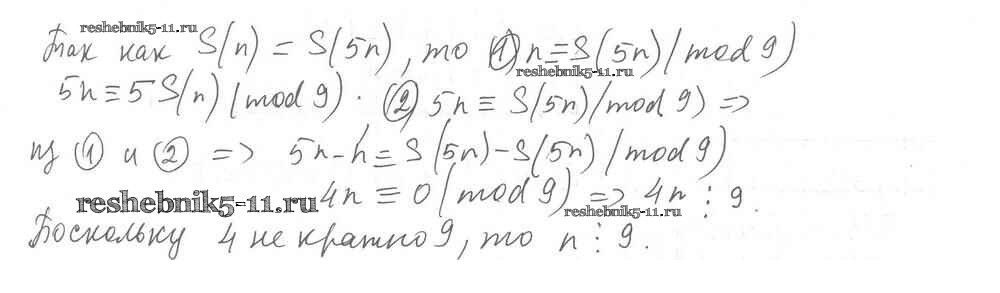 reshebnik5-11.ru
Так как S(n) = S(5n), то ① n ≡ S(5n) (mod 9)
reshebnik5-11.ru
5n ≡ 5S(n) (mod 9). ② 5n ≡ S(5n) (mod 9) =>
из ① и ② => 5n - n ≡ S(5n) - S(5n) (mod 9)
reshebnik5-11.ru 4n ≡ 0 (mod 9) => 4n ⋮ 9.
reshebnik5-11.ru
Поскольку 4 не кратно 9, то n ⋮ 9.